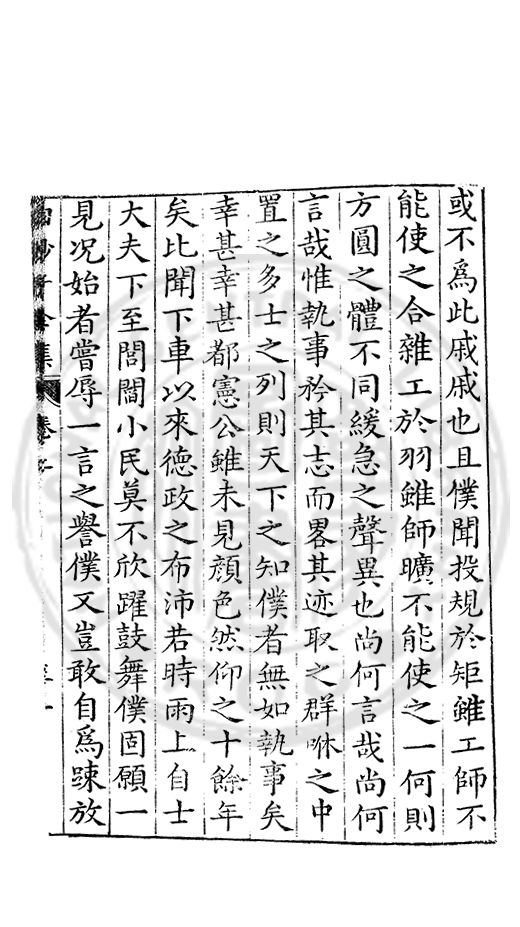 或不爲此戚戚也且僕聞投規於矩雖工師不
能使之合雜工於羽雖師曠不能使之一何則
方圓之體不同緩急之聲異也尚何言哉尚何
言哉惟執事矜其志而畧其迹取之群咻之中
置之多士之列則天下之知僕者無如執事矣
幸甚幸甚都憲公雖未見顔色然仰之十餘年
矣比聞下車以來德政之布沛若時雨上自士
大夫下至閭閻小民莫不欣躍鼓舞僕固願一
見况始者嘗辱一言之譽僕又豈敢自爲踈放
全集